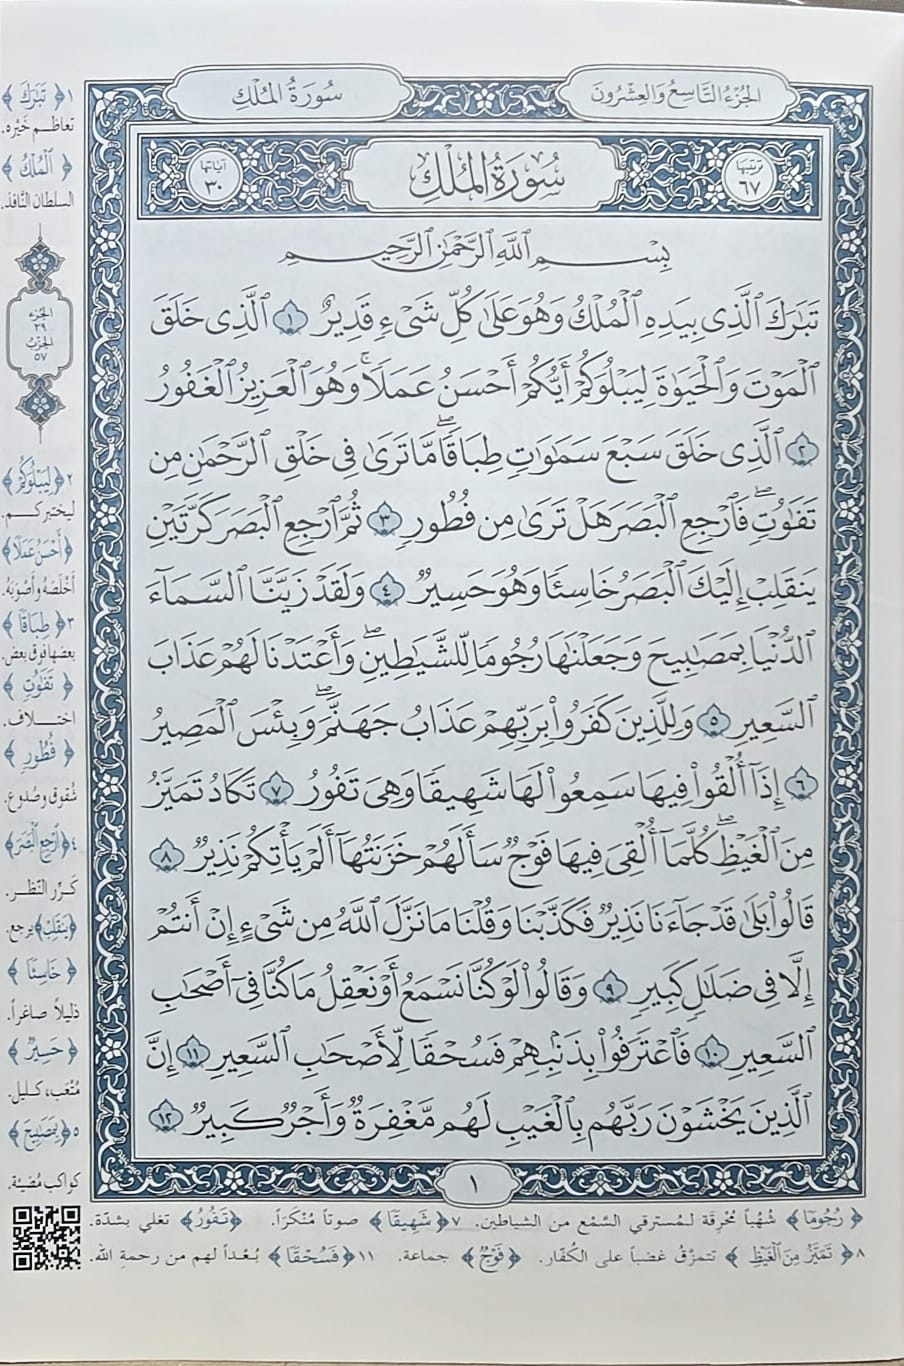 الجُزْءُ التَّاسِعُ وَالعِشْرُونَ
سُورَةُ المُلْكِ
تَرتيبُها ٦٧
سُورَةُ المُلْكِ
آيَاتُها ٣٠
بِسْمِ ٱللَّهِ ٱلرَّحْمَٰنِ ٱلرَّحِيمِ
تَبَٰرَكَ ٱلَّذِى بِيَدِهِ ٱلْمُلْكُ وَهُوَ عَلَىٰ كُلِّ شَىْءٍ قَدِيرٌ ١ ٱلَّذِى خَلَقَ
ٱلْمَوْتَ وَٱلْحَيَوٰةَ لِيَبْلُوَكُمْ أَيُّكُمْ أَحْسَنُ عَمَلًا ۚ وَهُوَ ٱلْعَزِيزُ ٱلْغَفُورُ
٢ ٱلَّذِى خَلَقَ سَبْعَ سَمَٰوَٰتٍ طِبَاقًا ۖ مَّا تَرَىٰ فِى خَلْقِ ٱلرَّحْمَٰنِ مِن
تَفَٰوُتٍ ۖ فَٱرْجِعِ ٱلْبَصَرَ هَلْ تَرَىٰ مِن فُطُورٍ ٣ ثُمَّ ٱرْجِعِ ٱلْبَصَرَ كَرَّتَيْنِ
يَنقَلِبْ إِلَيْكَ ٱلْبَصَرُ خَاسِئًا وَهُوَ حَسِيرٌ ٤ وَلَقَدْ زَيَّنَّا ٱلسَّمَآءَ
ٱلدُّنْيَا بِمَصَٰبِيحَ وَجَعَلْنَٰهَا رُجُومًا لِّلشَّيَٰطِينِ ۖ وَأَعْتَدْنَا لَهُمْ عَذَابَ
ٱلسَّعِيرِ ٥ وَلِلَّذِينَ كَفَرُوا۟ بِرَبِّهِمْ عَذَابُ جَهَنَّمَ ۖ وَبِئْسَ ٱلْمَصِيرُ
٦ إِذَآ أُلْقُوا۟ فِيهَا سَمِعُوا۟ لَهَا شَهِيقًا وَهِىَ تَفُورُ ٧ تَكَادُ تَمَيَّزُ
مِنَ ٱلْغَيْظِ ۖ كُلَّمَآ أُلْقِىَ فِيهَا فَوْجٌ سَأَلَهُمْ خَزَنَتُهَآ أَلَمْ يَأْتِكُمْ نَذِيرٌ ٨
قَالُوا۟ بَلَىٰ قَدْ جَآءَنَا نَذِيرٌ فَكَذَّبْنَا وَقُلْنَا مَا نَزَّلَ ٱللَّهُ مِن شَىْءٍ إِنْ أَنتُمْ
إِلَّا فِى ضَلَٰلٍ كَبِيرٍ ٩ وَقَالُوا۟ لَوْ كُنَّا نَسْمَعُ أَوْ نَعْقِلُ مَا كُنَّا فِىٓ أَصْحَٰبِ
ٱلسَّعِيرِ ١٠ فَٱعْتَرَفُوا۟ بِذَنۢبِهِمْ فَسُحْقًا لِّأَصْحَٰبِ ٱلسَّعِيرِ ١١ إِنَّ
ٱلَّذِينَ يَخْشَوْنَ رَبَّهُم بِٱلْغَيْبِ لَهُم مَّغْفِرَةٌ وَأَجْرٌ كَبِيرٌ ١٢
١
١ ﴿ تَبَٰرَكَ ﴾
تعاظم خَيْره.
﴿ ٱلْمُلْكُ ﴾
السلطان النَّافذ.
الجزء
٢٩
الحِزْبُ
٥٧
٢ ﴿ لِيَبْلُوَكُمْ ﴾
ليختبركم.
﴿ أَحْسَنُ عَمَلًا ﴾
أخْلَصُهُ وأصْوَبُهُ.
٣ ﴿ طِبَاقًا ﴾
بعضها فوق بعض.
﴿ تَفَٰوُتٍ ﴾
اختلاف.
﴿ فُطُورٍ ﴾
شُقوق وصُدوع.
٤ ﴿ ٱرْجِعِ ٱلْبَصَرَ ﴾
كَرِّر النَّظر.
﴿ يَنقَلِبْ ﴾ يرجع.
﴿ خَاسِئًا ﴾
ذليلاً صاغراً.
﴿ حَسِيرٌ ﴾
مُتْعَب، كليل.
٥ ﴿ بِمَصَٰبِيحَ ﴾
كواكب مُضيئة.
﴿ رُجُومًا ﴾ شُهُباً مُحْرِقة لمُسترقي السَّمْع من الشياطين. ٧ ﴿ شَهِيقًا ﴾ صوتاً مُنْكَرَاً. ﴿ تَفُورُ ﴾ تغلي بشدّة.
٨ ﴿ تَمَيَّزُ مِنَ ٱلْغَيْظِ ﴾ تتمزَّقُ غضباً على الكُفّار. ﴿ فَوْجٌ ﴾ جماعة. ١١ ﴿ فَسُحْقًا ﴾ بُعْداً لهم من رحمةِ الله.